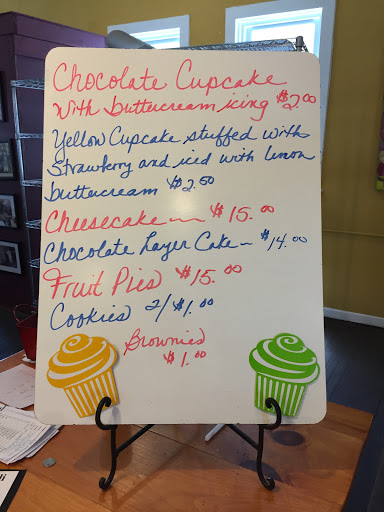 Chocolate Cupcake
with buttercream icing $2.00
Yellow Cupcake stuffed with
Strawberry and iced with lemon
buttercream $2.50
Cheesecake — $15.00
Chocolate Layer Cake — $14.00
Fruit Pies $15.00
Cookies 2/$1.00
Brownies
$1.00